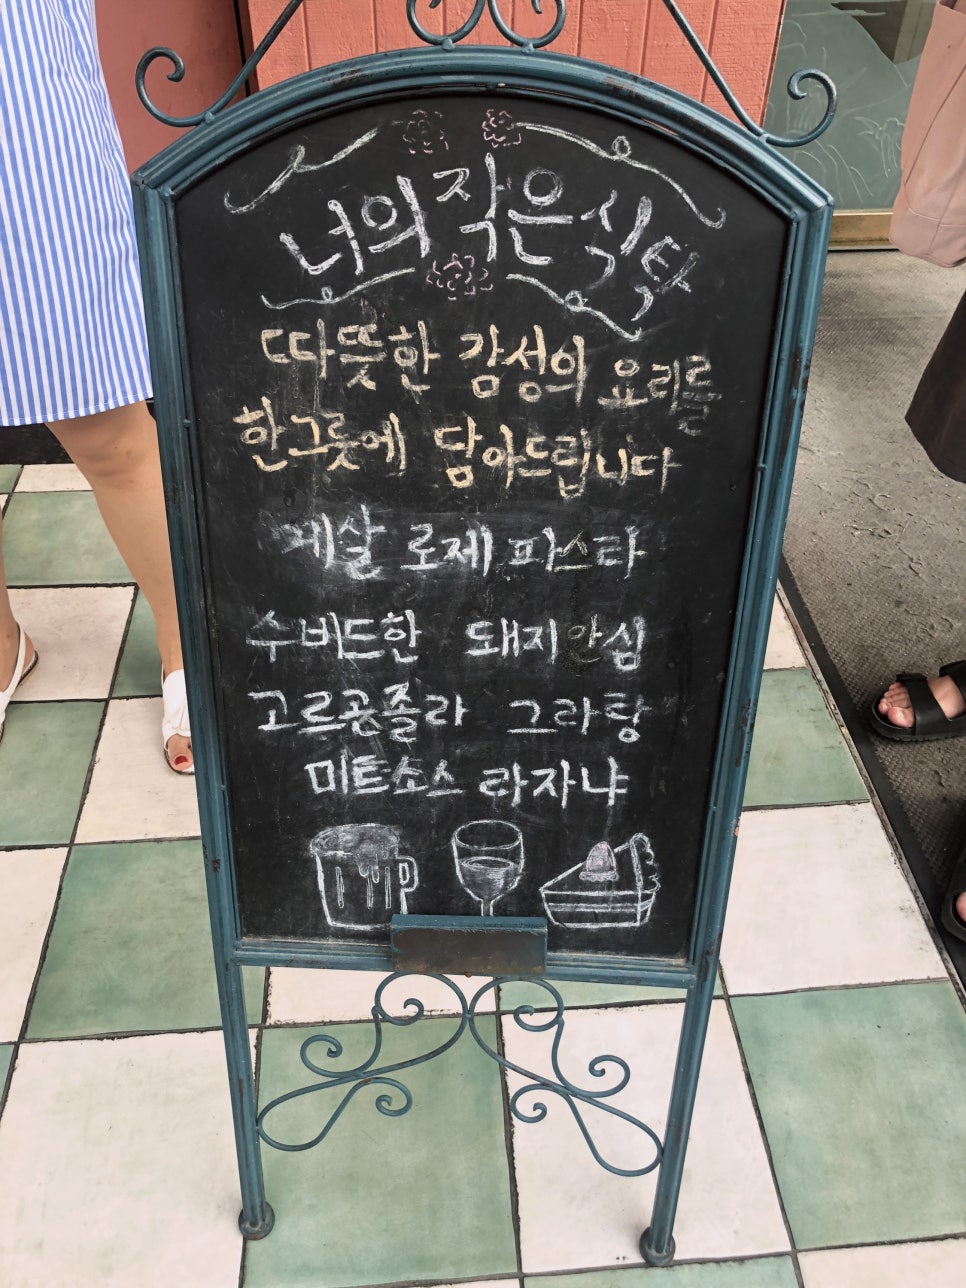 너의 작은 식탁
따뜻한 감성의 요리를
한그릇에 담아드립니다
게살 로제 파스타
수비드한 돼지안심
고르곤졸라 그라탕
미트소스 라자냐